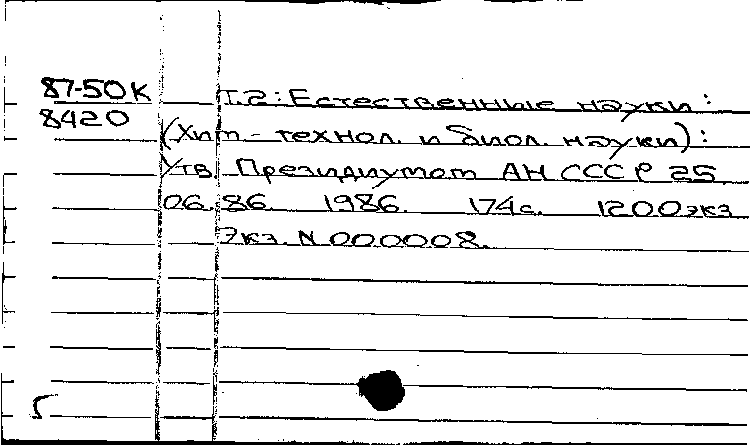 87-50К
8420
Т.2: Естественные науки:
(Хим-технол. и биол. науки):
Утв. Президиумом АН СССР 25
06.86. 1986. 174с. 1200экз
Экз. N 000008.
5